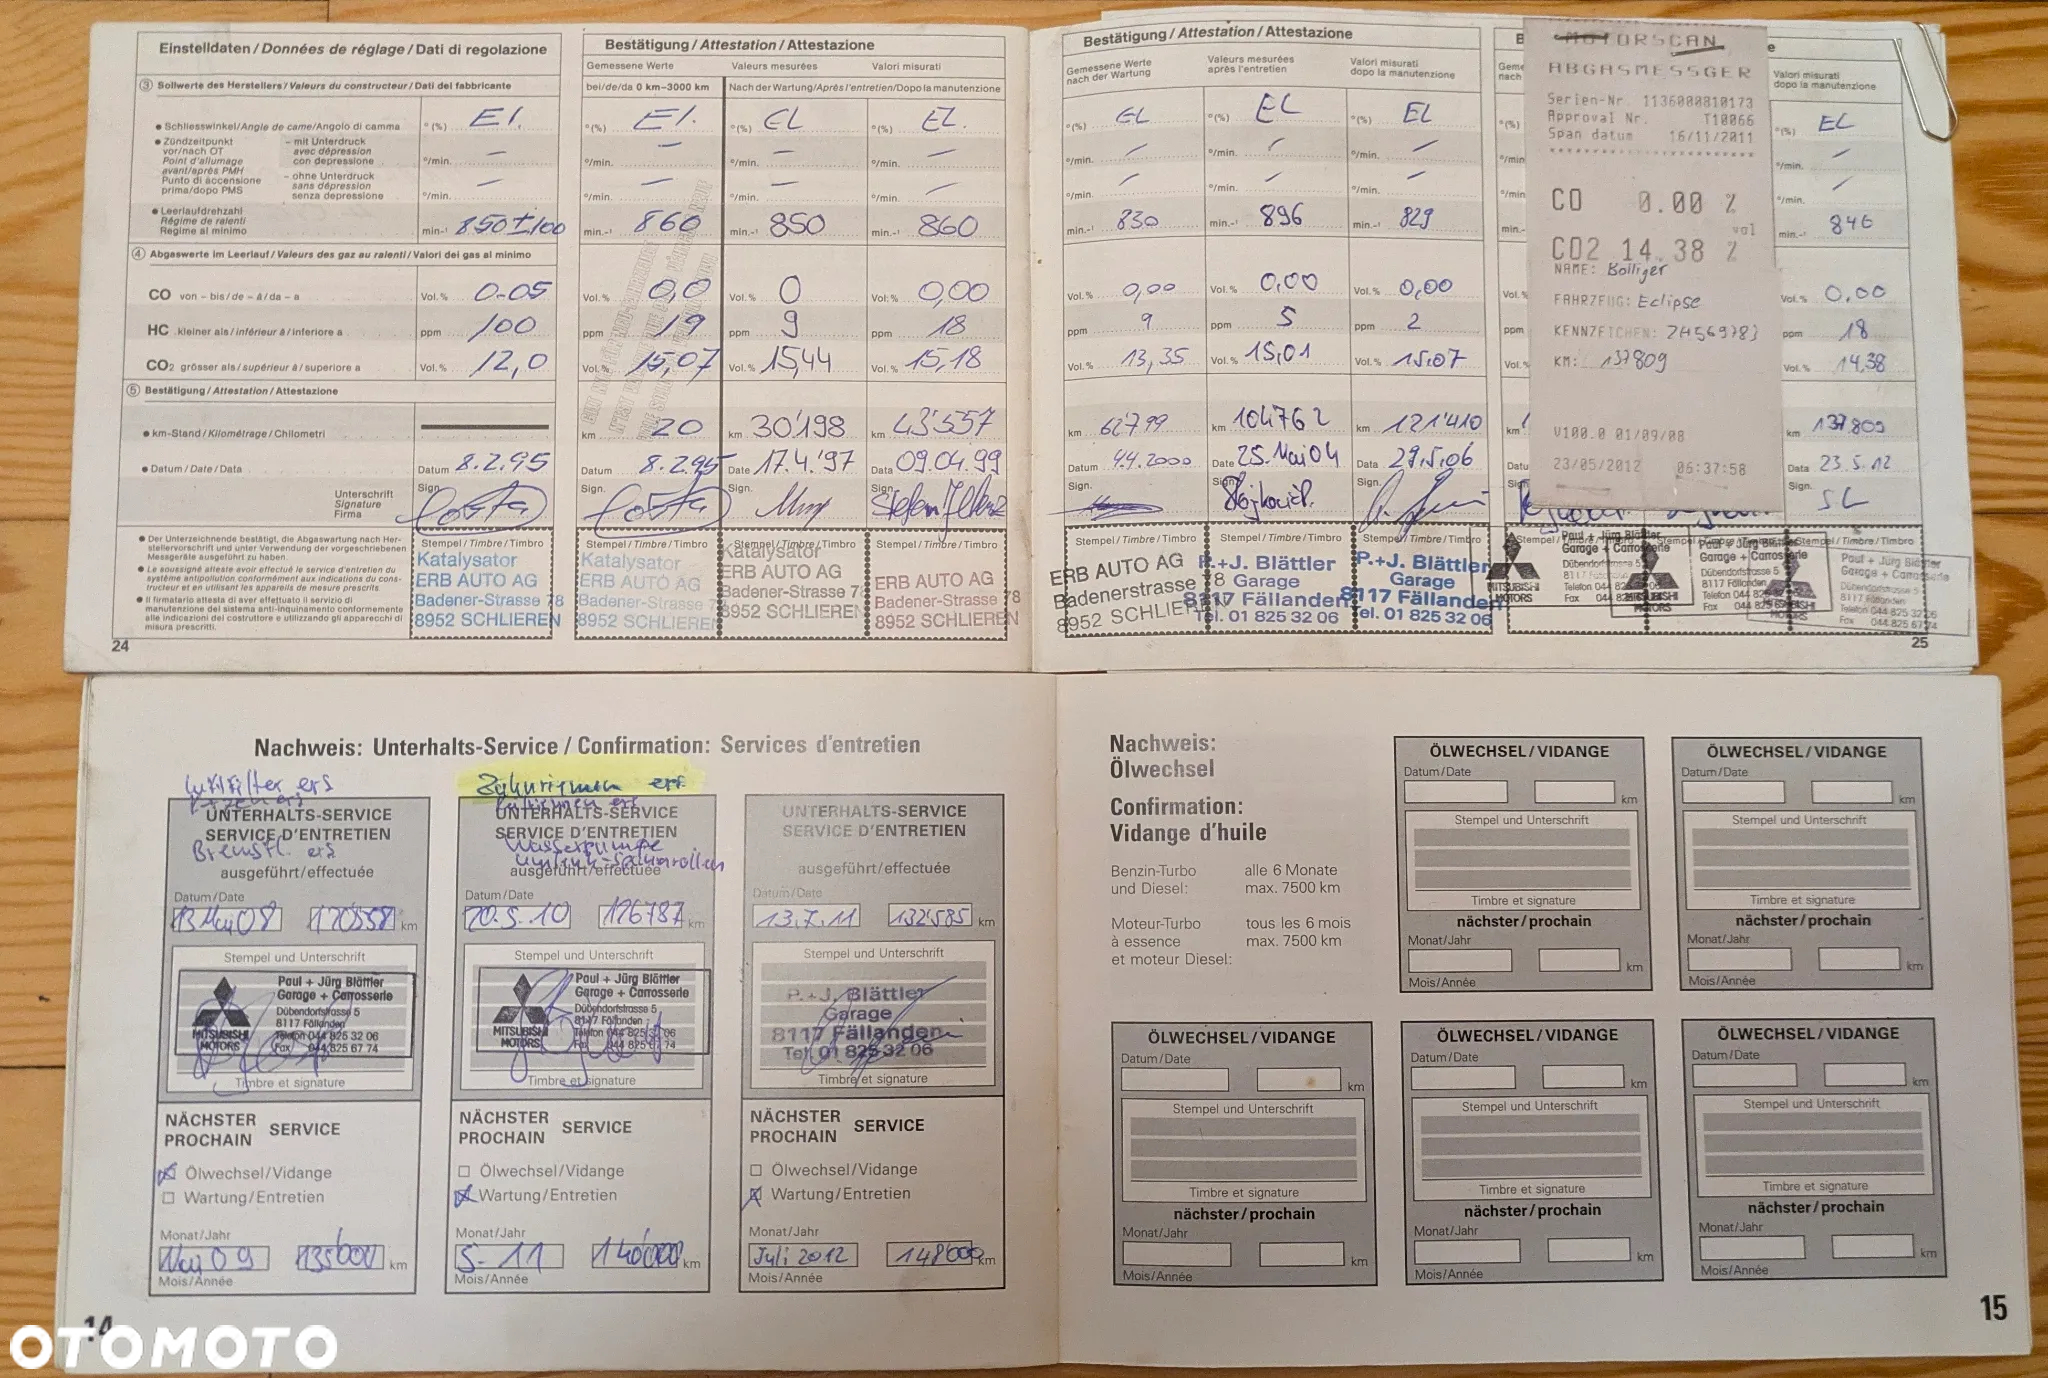 Einstelldaten / Données de réglage / Dati di regolazione
③ Sollwerte des Herstellers / Valeurs du constructeur / Dati del fabbricante
• Schliesswinkel / Angle de came / Angolo di camma °(%) El.
• Zündzeitpunkt vor/nach OT – mit Unterdruck
Point d'allumage avant/après PMH avec dépression
Punto di accensione prima/dopo PMS con depressione °/min. –
– ohne Unterdruck
sans dépression
senza depressione °/min. –
• Leerlaufdrehzahl
Régime de ralenti
Regime al minimo min.-¹ 850±100
④ Abgaswerte im Leerlauf / Valeurs des gaz au ralenti / Valori dei gas al minimo
CO von – bis / de – à / da – a Vol.% 0-05
HC kleiner als / inférieur à / inferiore a ppm 100
CO₂ grösser als / supérieur à / superiore a Vol.% 12,0
⑤ Bestätigung / Attestation / Attestazione
• km-Stand / Kilométrage / Chilometri
• Datum / Date / Data Datum 8.2.95
Unterschrift
Signature
Firma
Sign.
• Der Unterzeichnende bestätigt, die Abgaswartung nach Herstellervorschrift und unter Verwendung der vorgeschriebenen Messgeräte ausgeführt zu haben.
• Le soussigné atteste avoir effectué le service d'entretien du système antipollution conformément aux indications du constructeur et en utilisant les appareils de mesure prescrits.
• Il firmatario attesta di aver effettuato il servizio di manutenzione del sistema anti-inquinamento conformemente alle indicazioni del costruttore e utilizzando gli apparecchi di misura prescritti.
Stempel / Timbre / Timbro
Katalysator
ERB AUTO AG
Badener-Strasse 78
8952 SCHLIEREN
24
Bestätigung / Attestation / Attestazione
Gemessene Werte Valeurs mesurées Valori misurati
bei/de/da 0 km–3000 km Nach der Wartung / Après l'entretien / Dopo la manutenzione
°(%) El. °(%) EL °(%) EL.
°/min. – °/min. – °/min. –
°/min. – °/min. – °/min. –
min.-¹ 860 min.-¹ 850 min.-¹ 860
Vol.% 0,0 Vol.% 0 Vol.% 0,00
ppm 19 ppm 9 ppm 18
Vol.% 15,07 Vol.% 15,44 Vol.% 15,18
km 20 km 30'198 km 43'557
Datum 8.2.95 Date 17.4.'97 Data 09.04.99
Sign. Sign. Sign.
Stempel / Timbre / Timbro Stempel / Timbre / Timbro Stempel / Timbre / Timbro
Katalysator Katalysator
ERB AUTO AG ERB AUTO AG ERB AUTO AG
Badener-Strasse 7 Badener-Strasse 7 Badener-Strasse 78
8952 SCHLIEREN 8952 SCHLIEREN 8952 SCHLIEREN
Bestätigung / Attestation / Attestazione
Gemessene Werte nach der Wartung
Valeurs mesurées après l'entretien
Valori misurati dopo la manutenzione
°(%) EL °(%) EL °(%) EL
°/min. – °/min. – °/min. –
°/min. – °/min. – °/min. –
min.-¹ 830 min.-¹ 896 min.-¹ 829
Vol.% 0,00 Vol.% 0,00 Vol.% 0,00
ppm 9 ppm 5 ppm 2
Vol.% 13,35 Vol.% 15,01 Vol.% 15.07
km 62'799 km 104762 km 121'410
Datum 4.4.2000 Date 25. Mai 04 Data 29.5.06
Sign. Sign. Sign.
ERB AUTO AG
Badenerstrasse 8
8952 SCHLIEREN
P.+J. Blättler
Garage
8117 Fällanden
Tel. 01 825 32 06
P.+J. Blättler
Garage
8117 Fällanden
Tel. 01 825 32 06
MOTORSCAN
ABGASMESSGER
Serien-Nr. 1136000810173
Approval Nr. T10066
Span datum 16/11/2011
CO 0.00 %
vol
CO2 14.38 %
NAME: Bolliger
FAHRZEUG: Eclipse
KENNZEICHEN: ZH569783
KM: 137809
V100.0 01/09/08
23/05/2012 06:37:58
Valori misurati
dopo la manutenzione
°(%) EL
°/min. –
°/min. –
min.-¹ 846
Vol.% 0.00
ppm 18
Vol.% 14,38
km 137809
Data 23.5.12
Sign. SL
Stempel / Timbre / Timbro
MITSUBISHI
MOTORS
Paul + Jürg Blättler
Garage + Carrosserie
Dübendorfstrasse 5
8117 Fällanden
Telefon 044 825 32 06
Fax 044 825 67 74
25
Nachweis: Unterhalts-Service / Confirmation: Services d'entretien
Luftfilter ers
UNTERHALTS-SERVICE
SERVICE D'ENTRETIEN
Bremsfl. ers
ausgeführt/effectuée
Datum/Date
13 Mai 08 120558 km
Stempel und Unterschrift
MITSUBISHI
MOTORS
Paul + Jürg Blättler
Garage + Carrosserie
Dübendorfstrasse 5
8117 Fällanden
Telefon 044 825 32 06
Fax 044 825 67 74
Timbre et signature
NÄCHSTER
PROCHAIN SERVICE
Ölwechsel/Vidange
Wartung/Entretien
Monat/Jahr
Mai 09 135000 km
Mois/Année
Zahnriemen ers.
UNTERHALTS-SERVICE
SERVICE D'ENTRETIEN
Wasserpumpe
Umlenk-Spannrollen
ausgeführt/effectuée
Datum/Date
20.5.10 126787 km
Stempel und Unterschrift
MITSUBISHI
MOTORS
Paul + Jürg Blättler
Garage + Carrosserie
Dübendorfstrasse 5
8117 Fällanden
Telefon 044 825 32 06
Fax 044 825 67 74
Timbre et signature
NÄCHSTER
PROCHAIN SERVICE
Ölwechsel/Vidange
Wartung/Entretien
Monat/Jahr
5-11 140000 km
Mois/Année
UNTERHALTS-SERVICE
SERVICE D'ENTRETIEN
ausgeführt/effectuée
Datum/Date
13.7.11 132585 km
Stempel und Unterschrift
P.+J. Blättler
Garage
8117 Fällanden
Tel. 01 825 32 06
Timbre et signature
NÄCHSTER
PROCHAIN SERVICE
Ölwechsel/Vidange
Wartung/Entretien
Monat/Jahr
Juli 2012 148000 km
Mois/Année
14
Nachweis:
Ölwechsel
Confirmation:
Vidange d'huile
Benzin-Turbo alle 6 Monate
und Diesel: max. 7500 km
Moteur-Turbo tous les 6 mois
à essence max. 7500 km
et moteur Diesel:
ÖLWECHSEL/VIDANGE
Datum/Date
km
Stempel und Unterschrift
Timbre et signature
nächster/prochain
Monat/Jahr
km
Mois/Année
ÖLWECHSEL/VIDANGE
Datum/Date
km
Stempel und Unterschrift
Timbre et signature
nächster/prochain
Monat/Jahr
km
Mois/Année
ÖLWECHSEL/VIDANGE
Datum/Date
km
Stempel und Unterschrift
Timbre et signature
nächster/prochain
Monat/Jahr
km
Mois/Année
ÖLWECHSEL/VIDANGE
Datum/Date
km
Stempel und Unterschrift
Timbre et signature
nächster/prochain
Monat/Jahr
km
Mois/Année
ÖLWECHSEL/VIDANGE
Datum/Date
km
Stempel und Unterschrift
Timbre et signature
nächster/prochain
Monat/Jahr
km
Mois/Année
15
OTOMOTO